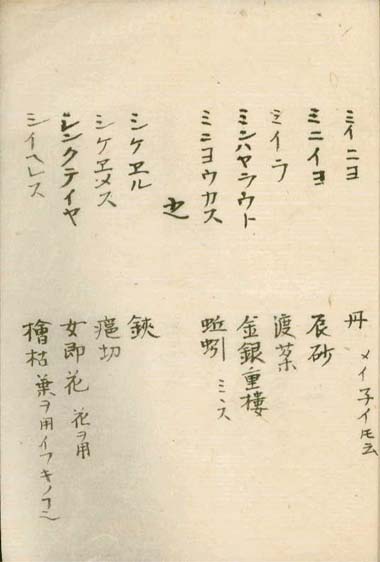 ミイニヨ 丹 メイ子イ圧云
ミニイヨ 辰砂
ミイラ 渡薬
ミンハヤラウト 金銀重樓
ミニヨウカス 蚯蚓 ミヽス
シケヱル 鋏
シケヱメス 瘡切
レンクテイヤ 女即花 花ヲ用
シイヘレス 檜枯葉ヲ用イフキノコ